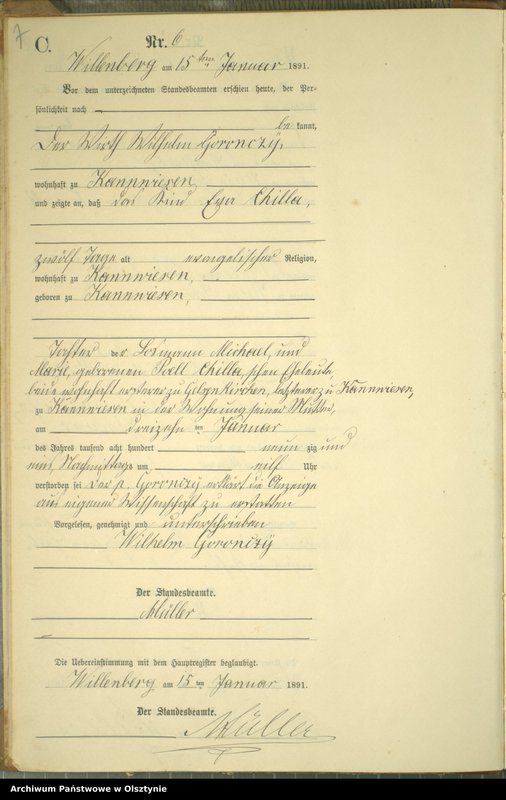 7
C.
Nr. 6
Willenberg am 15ten Januar 1891.
Vor dem unterzeichneten Standesbeamten erschien heute, der Per-
sönlichkeit nach
be kannt,
Der Wirth Wilhelm Goronczÿ,
wohnhaft zu Kannwiesen,
und zeigte an, daß das Kind Eva Chilla,
zwölf Tage alt evangelischer Religion,
wohnhaft zu Kannwiesen,
geboren zu Kannwiesen,
Tochter der Losmann Michael, und
Marie, geborenen Chilla, schen Eheleute
beide wohnhaft ersterer zu Gelsenkirchen, letztere zu Kannwiesen,
zu Kannwiesen in der Wohnung seiner Mutter,
am dreizehn ten Januar
des Jahres tausend acht hundert neun zig und
eins, Nachmittags um eilf Uhr
verstorben sei Der p. Goronczÿ erklärt die Anzeige
aus eigener Wissenschaft zu erstatten
Vorgelesen, genehmigt und unterschrieben
Wilhelm Goronczÿ
Der Standesbeamte.
Müller
Die Uebereinstimmung mit dem Hauptregister beglaubigt.
Willenberg am 15 ten Januar 1891.
Der Standesbeamte.
Müller
Archiwum Państwowe w Olsztynie